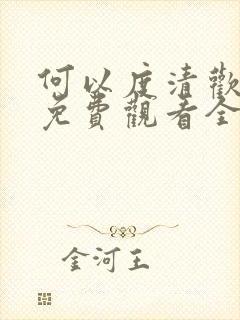 何以度清歡
免費觀看全
金河王